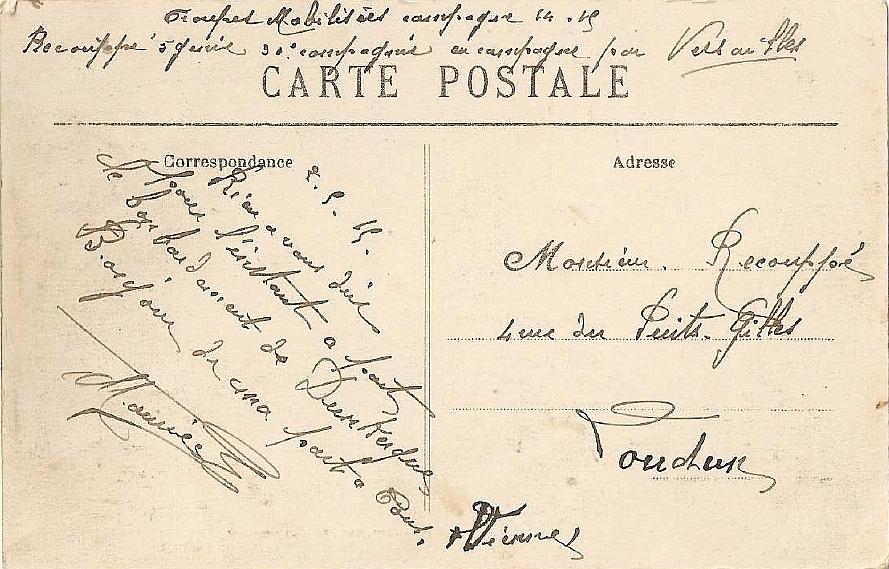 Troupes Mobilisées campagne 14-15
Recouppé 5 génie 30e compagnie en campagne par Versailles
CARTE POSTALE
Correspondance
2.5.15.
Rien a vous dire
pour l'instant a part
le bombardement de Dunkerque
Bonjour de ma part a Tous.
Maurice
Adresse
Monsieur. Recouppé
4 rue du Puits-Gilles
Loudun
Vienne